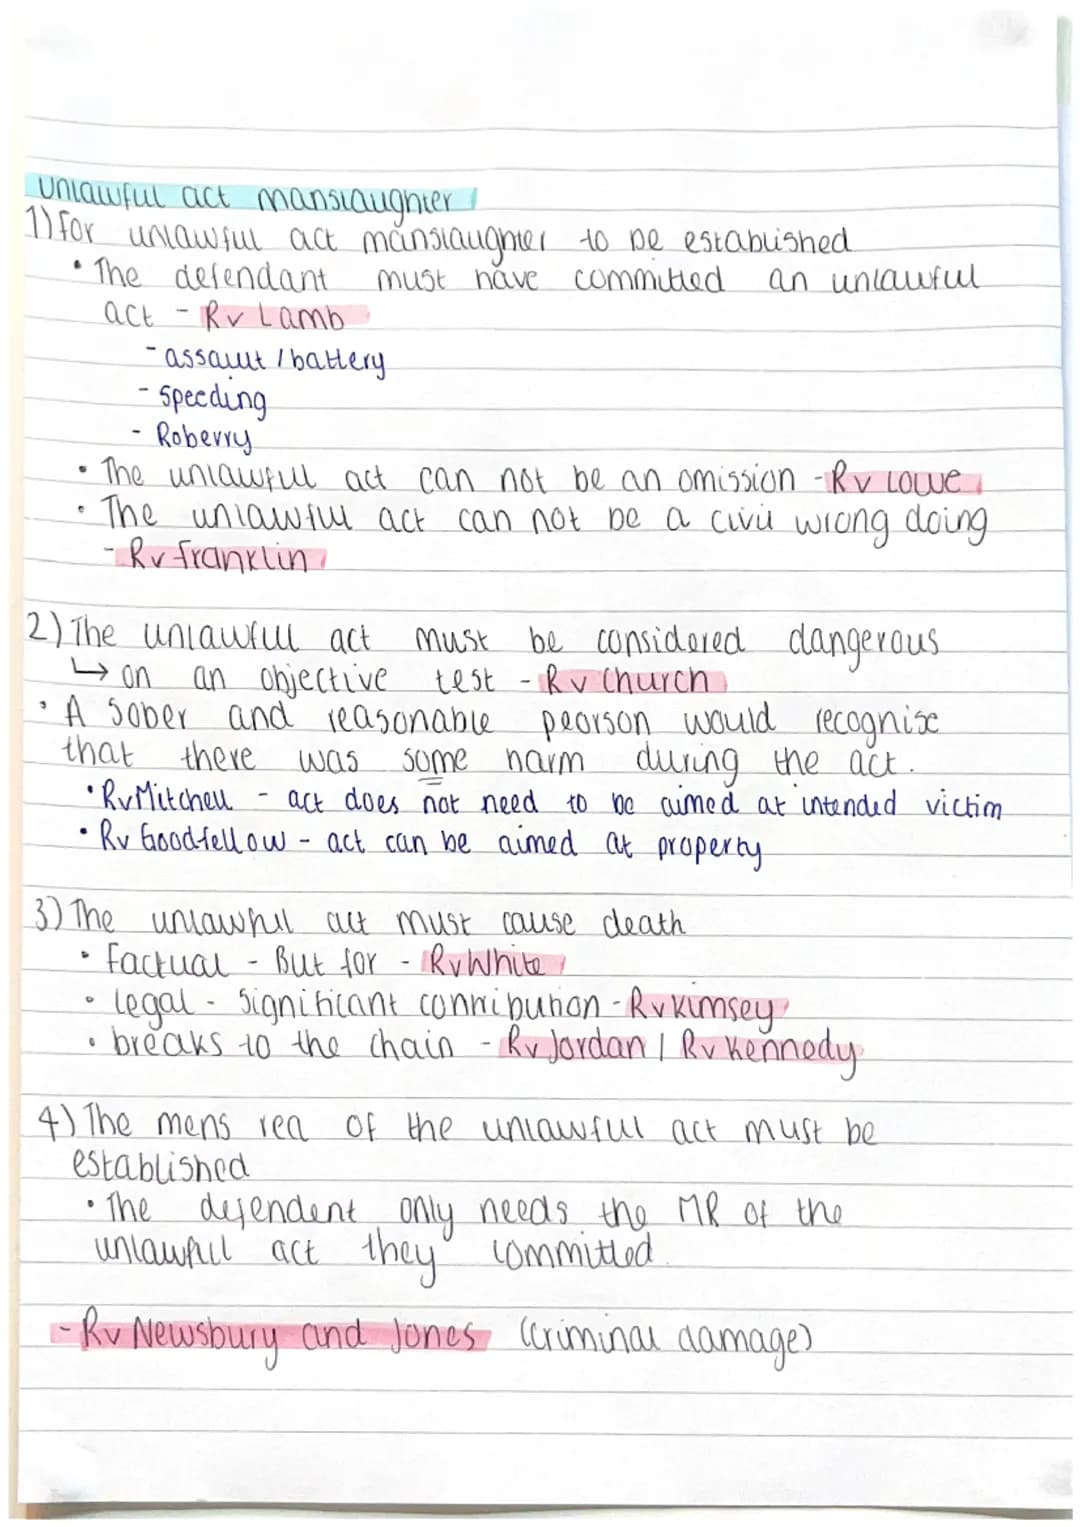 Unlawful act manslaughter
1) for unlawful act manslaughter to be established
• The defendant must have committed an unlawful
act - R v Lamb
- assault / battery
- Speeding
- Roberry
• The unlawful act can not be an omission - R v Lowe
• The unlawful act can not be a civil wrong doing
- R v franklin
2) The unlawful act must be considered dangerous
↳ on an objective test - R v Church
• A sober and reasonable pearson would recognise
that there was some harm during the act.
• R v Mitchell - act does not need to be aimed at intended victim
• R v Goodfellow - act can be aimed at property
3) The unlawful act must cause death
• Factual - But for - R v White
• legal - significant contribution - R v Kimsey
• breaks to the chain - R v Jordan / R v Kennedy
4) The mens rea of the unlawful act must be
established
• The defendent only needs the MR of the
unlawfull act they committed.
- R v Newsbury and Jones (criminal damage)